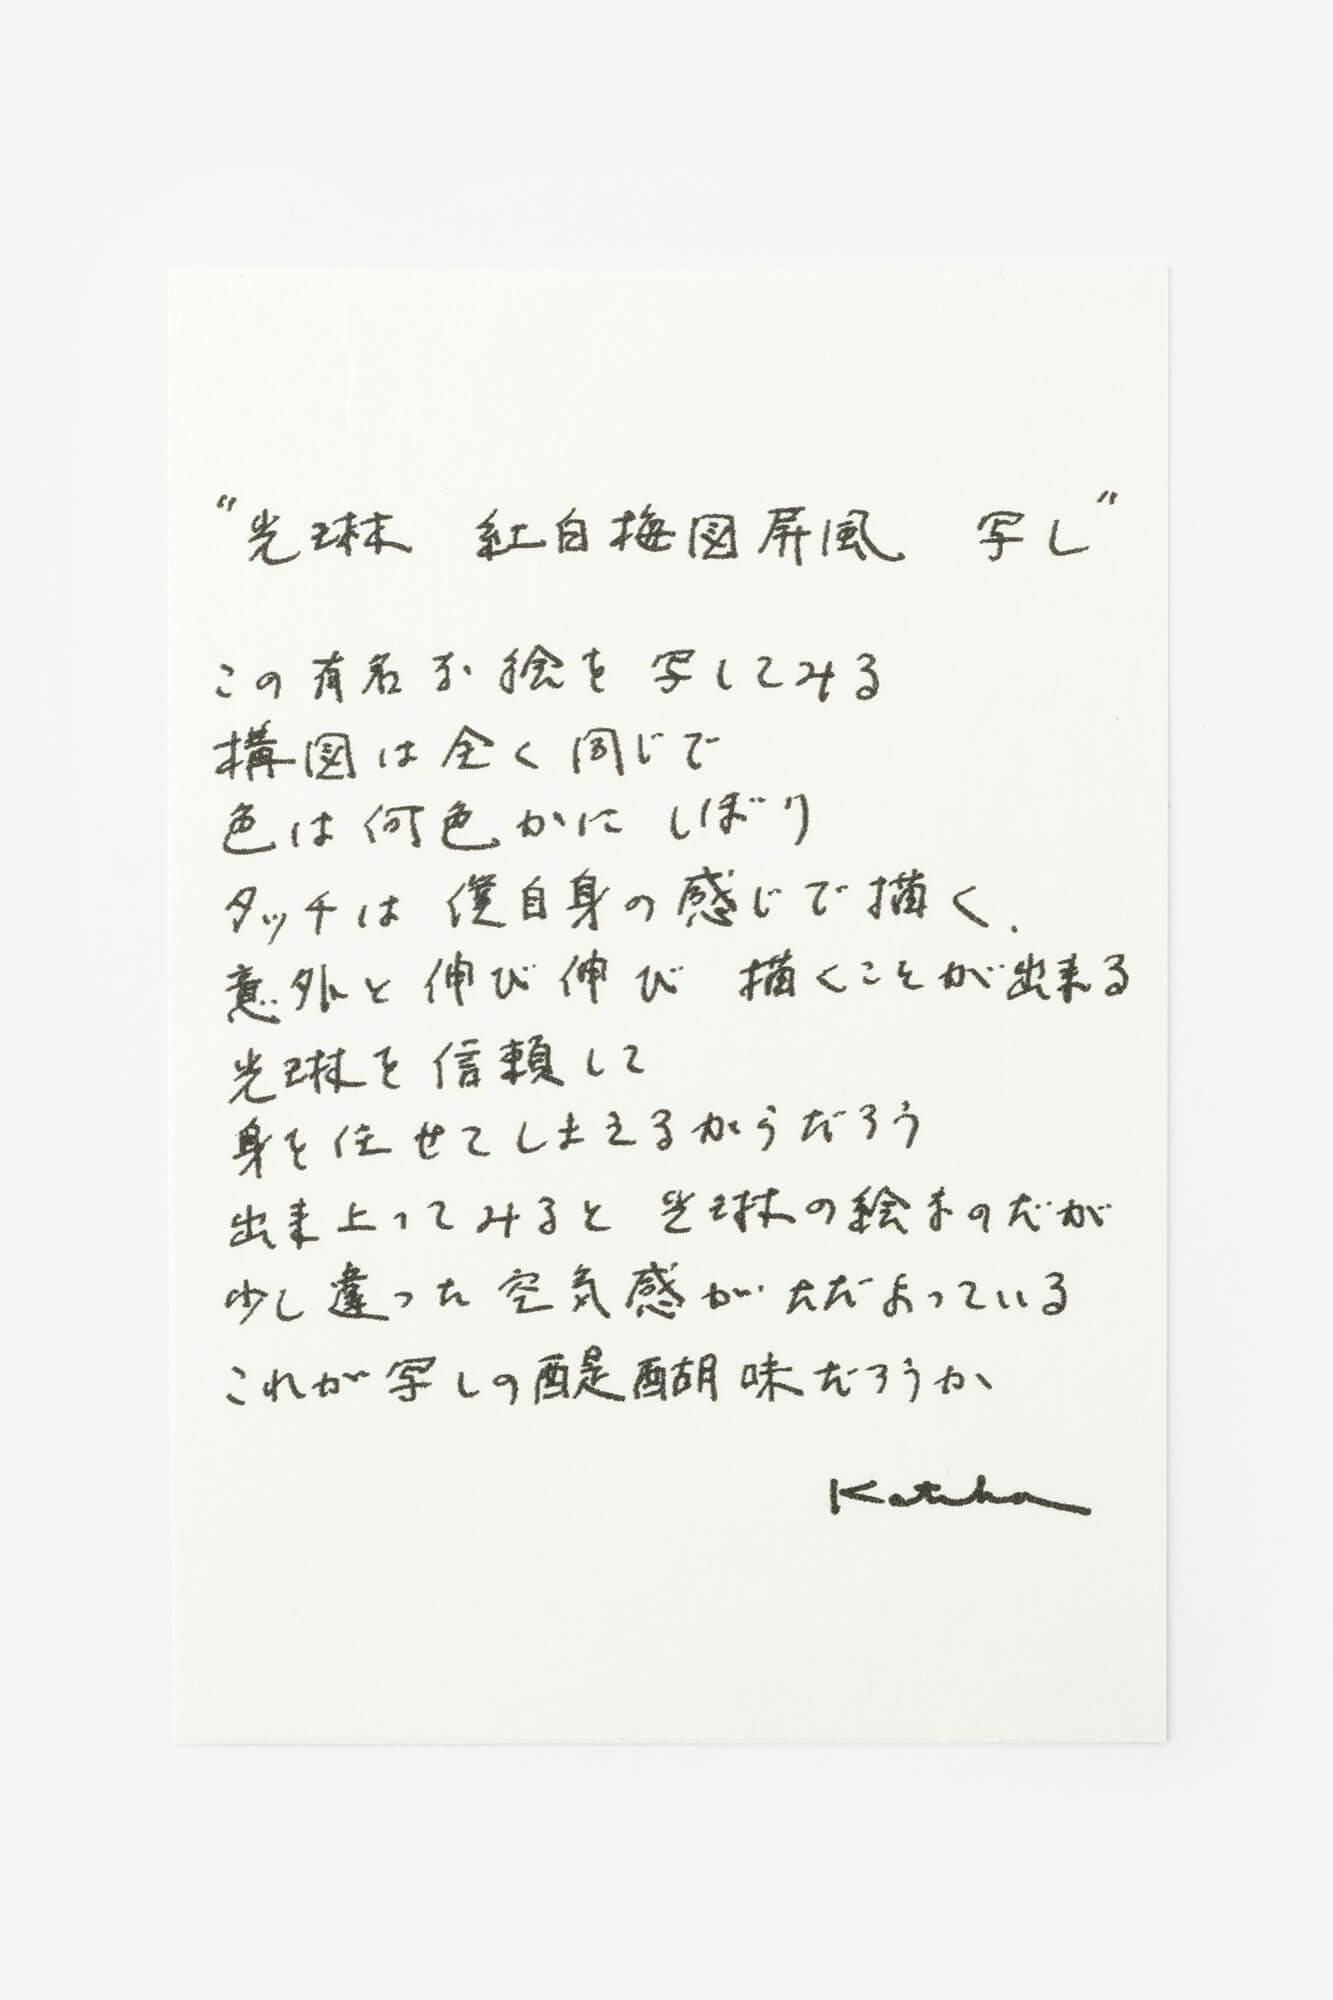 "光琳　紅白梅図屏風　写し"
この有名な絵を写してみる
構図は全く同じで
色は何色かに しぼり
タッチは 僕自身の感じで描く.
意外と伸び伸び 描くことが出来る
光琳を信頼して
身を任せてしまえるからだろう
出来上ってみると 光琳の絵なのだが
少し違った空気感が ただよっている
これが写しの醍醐味だろうか